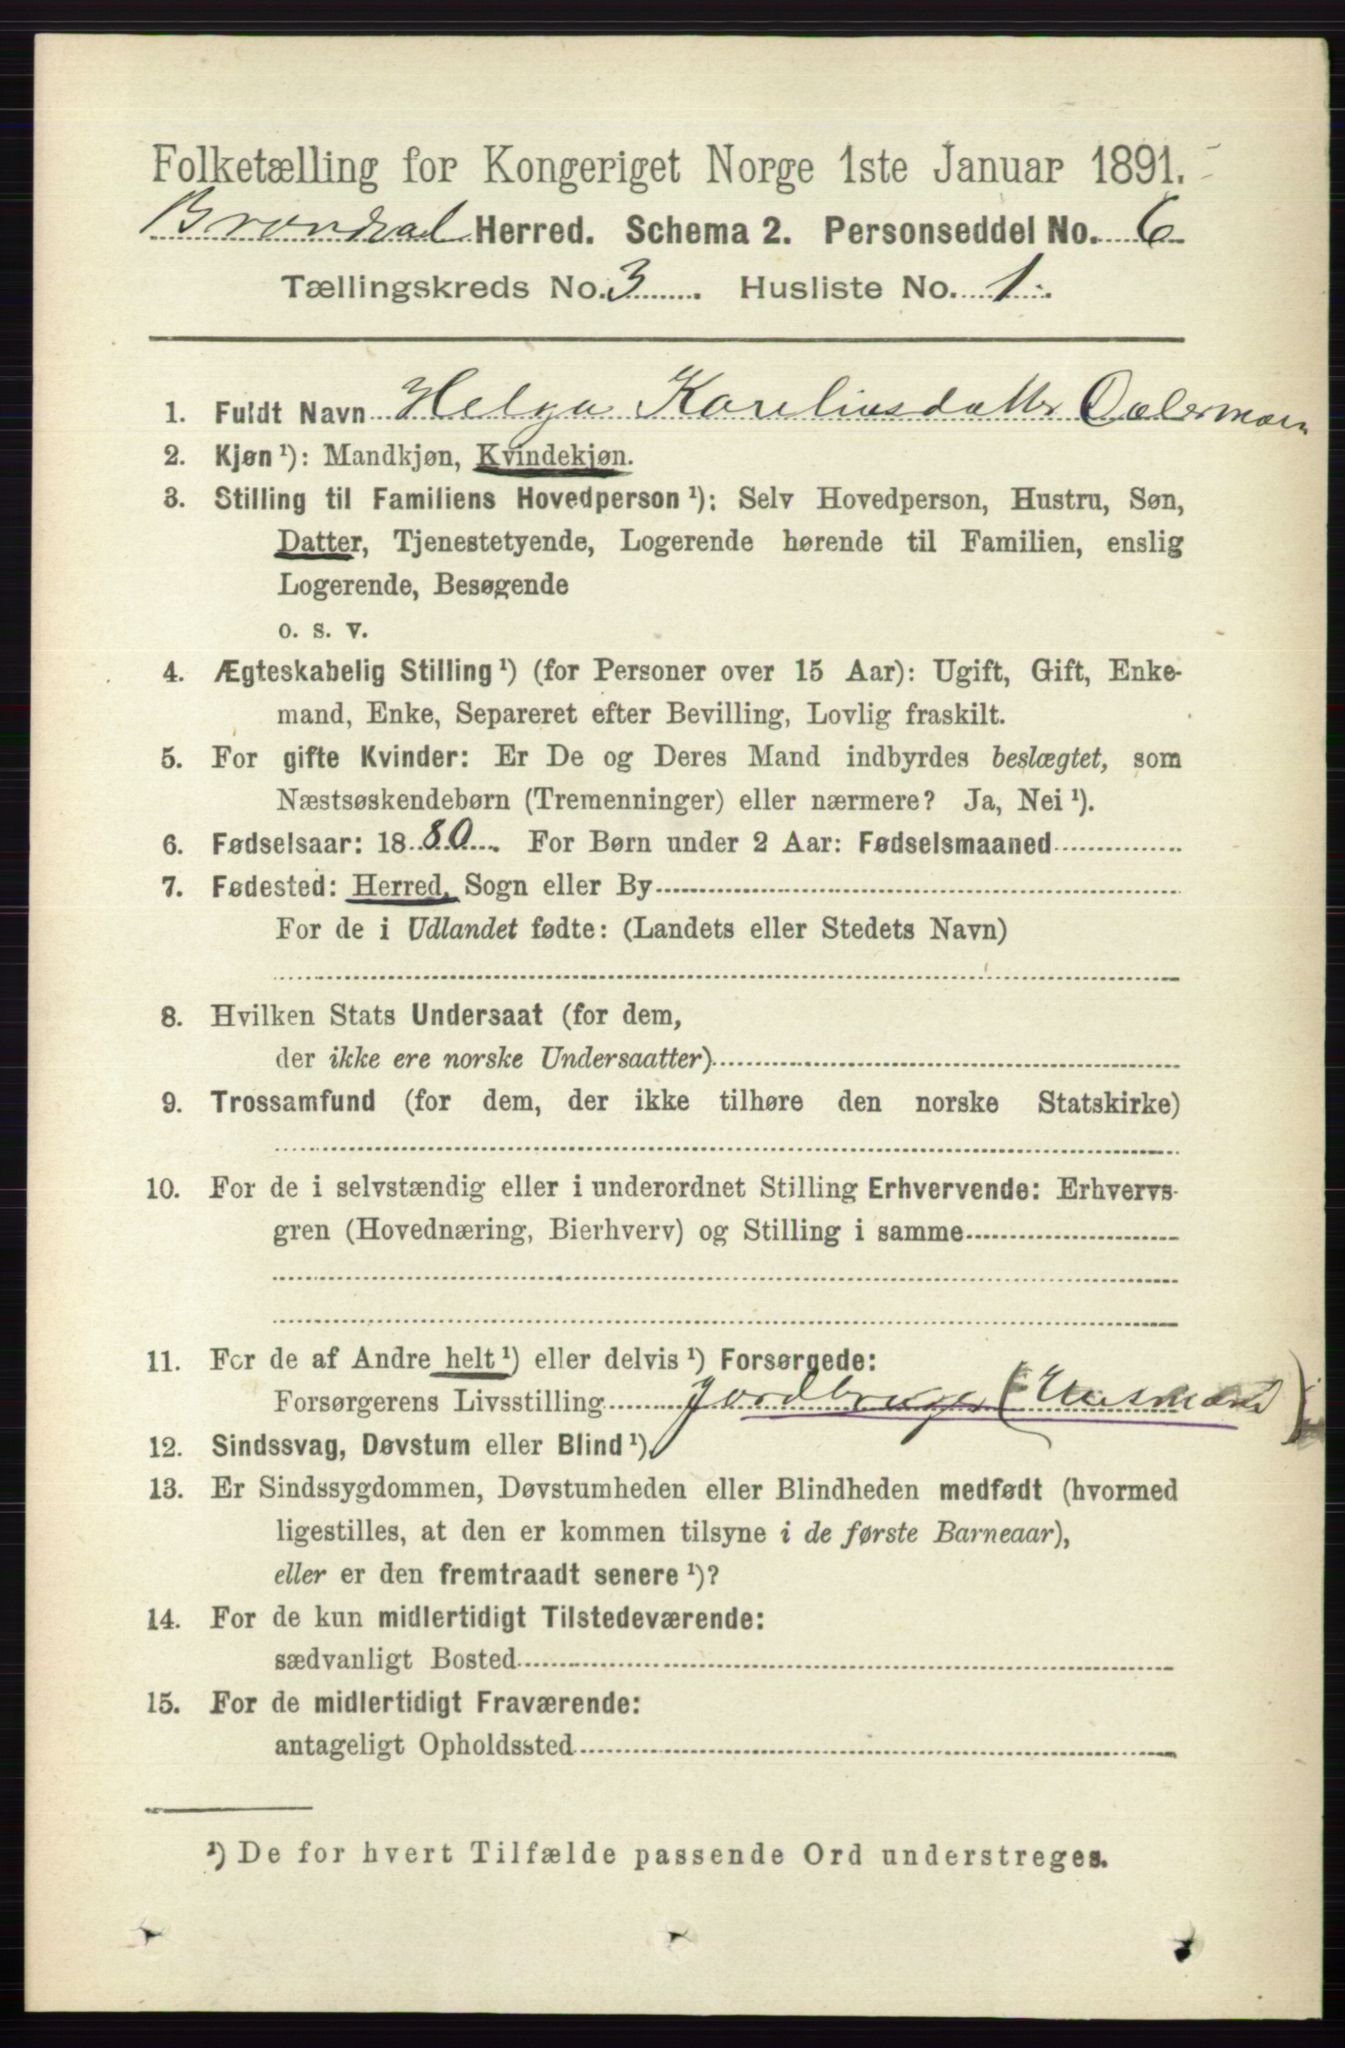 Folketælling for Kongeriget Norge 1ste Januar 1891.
Brandval Herred. Schema 2. Personseddel No. 6
Tællingskreds No. 3 Husliste No. 1
1. Fuldt Navn Helga Kareliusdatter
2. Kjøn ¹): Mandkjøn, Kvindekjøn.
3. Stilling til Familiens Hovedperson ¹): Selv Hovedperson, Hustru, Søn,
Datter, Tjenestetyende, Logerende hørende til Familien, enslig
Logerende, Besøgende
o. s. v.
4. Ægteskabelig Stilling ¹) (for Personer over 15 Aar): Ugift, Gift, Enke-
mand, Enke, Separeret efter Bevilling, Lovlig fraskilt.
5. For gifte Kvinder: Er De og Deres Mand indbyrdes beslægtet, som
Næstsøskendebørn (Tremenninger) eller nærmere? Ja, Nei ¹).
6. Fødselsaar: 1880. For Børn under 2 Aar: Fødselsmaaned
7. Fødested: Herred, Sogn eller By
For de i Udlandet fødte: (Landets eller Stedets Navn)
8. Hvilken Stats Undersaat (for dem,
der ikke ere norske Undersaatter)
9. Trossamfund (for dem, der ikke tilhøre den norske Statskirke)
10. For de i selvstændig eller i underordnet Stilling Erhvervende: Erhvervs-
gren (Hovednæring, Bierhverv) og Stilling i samme
11. For de af Andre helt ¹) eller delvis ¹) Forsørgede:
Forsørgerens Livsstilling Jordbruger (Husmand)
12. Sindssvag, Døvstum eller Blind ¹).
13. Er Sindssygdommen, Døvstumheden eller Blindheden medfødt (hvormed
ligestilles, at den er kommen tilsyne i de første Barneaar),
eller er den fremtraadt senere ¹)?
14. For de kun midlertidigt Tilstedeværende:
sædvanligt Bosted
15. For de midlertidigt Fraværende:
antageligt Opholdssted
¹) De for hvert Tilfælde passende Ord understreges.